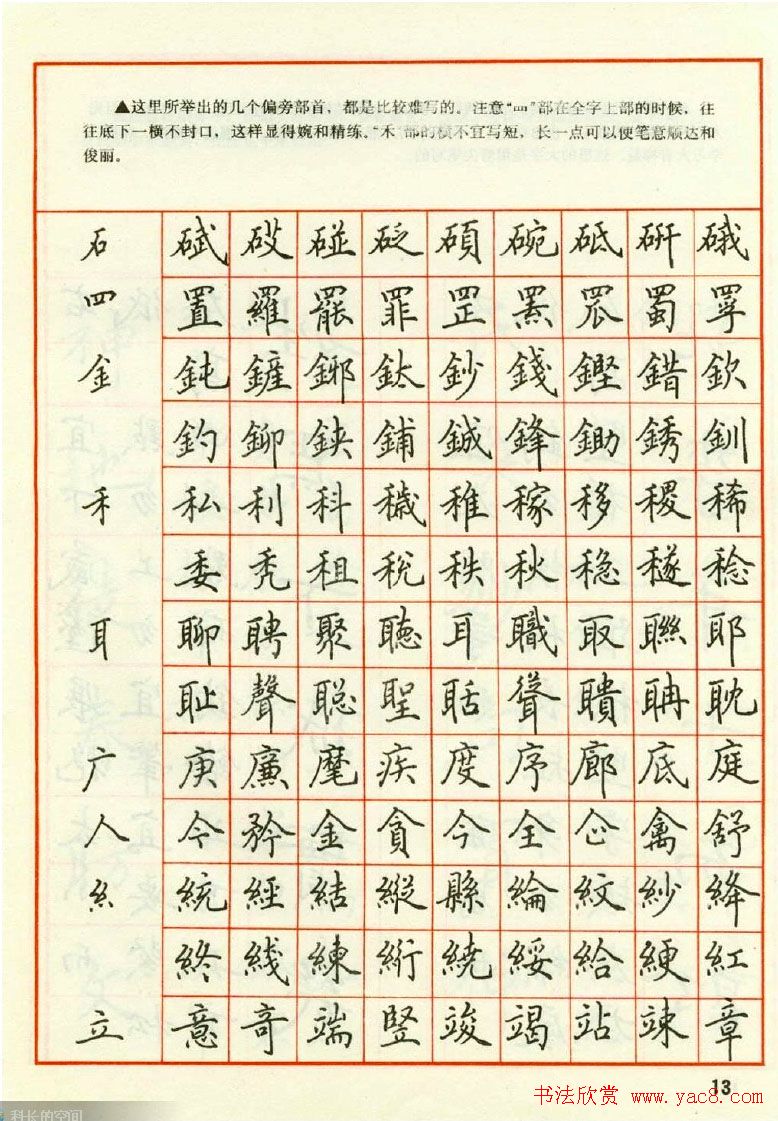 ▲这里所举出的几个偏旁部首，都是比较难写的。注意“罒”部在全字上部的时候，往
往底下一横不封口，这样显得婉和精练。“禾”部的横不宜写短，长一点可以使笔意顺达和
俊丽。
石 碔 砹 碰 砭 碩 碗 砥 研 硪
罒 置 羅 罷 罪 罡 罴 罘 蜀
金 鈍 鏟 鎯 鈦 鈔 錢 鏗 錯 欽
釣 鉚 鋏 鋪 鋮 鋒 鋤 銹 釧
禾 私 利 科 穢 稚 稼 移 稷 稀
委 秃 租 税 秩 秋 稳 稔
耳 聊 聘 聚 聴 耳 職 取 聯 耶
耻 聲 聪 聖 聒 聳 聵 聃 耽
广 庚 廉 麾 疾 度 序 廊 底 庭
人 令 矜 金 貪 今 全 企 禽 舒
糹 統 經 結 縱 縣 綸 紋 紗 絳
終 綫 練 絎 繞 綏 給 綆 紅
立 意 奇 端 竪 竣 竭 站 竦 章
13
书法欣赏 www.yac8.com
科长的空间